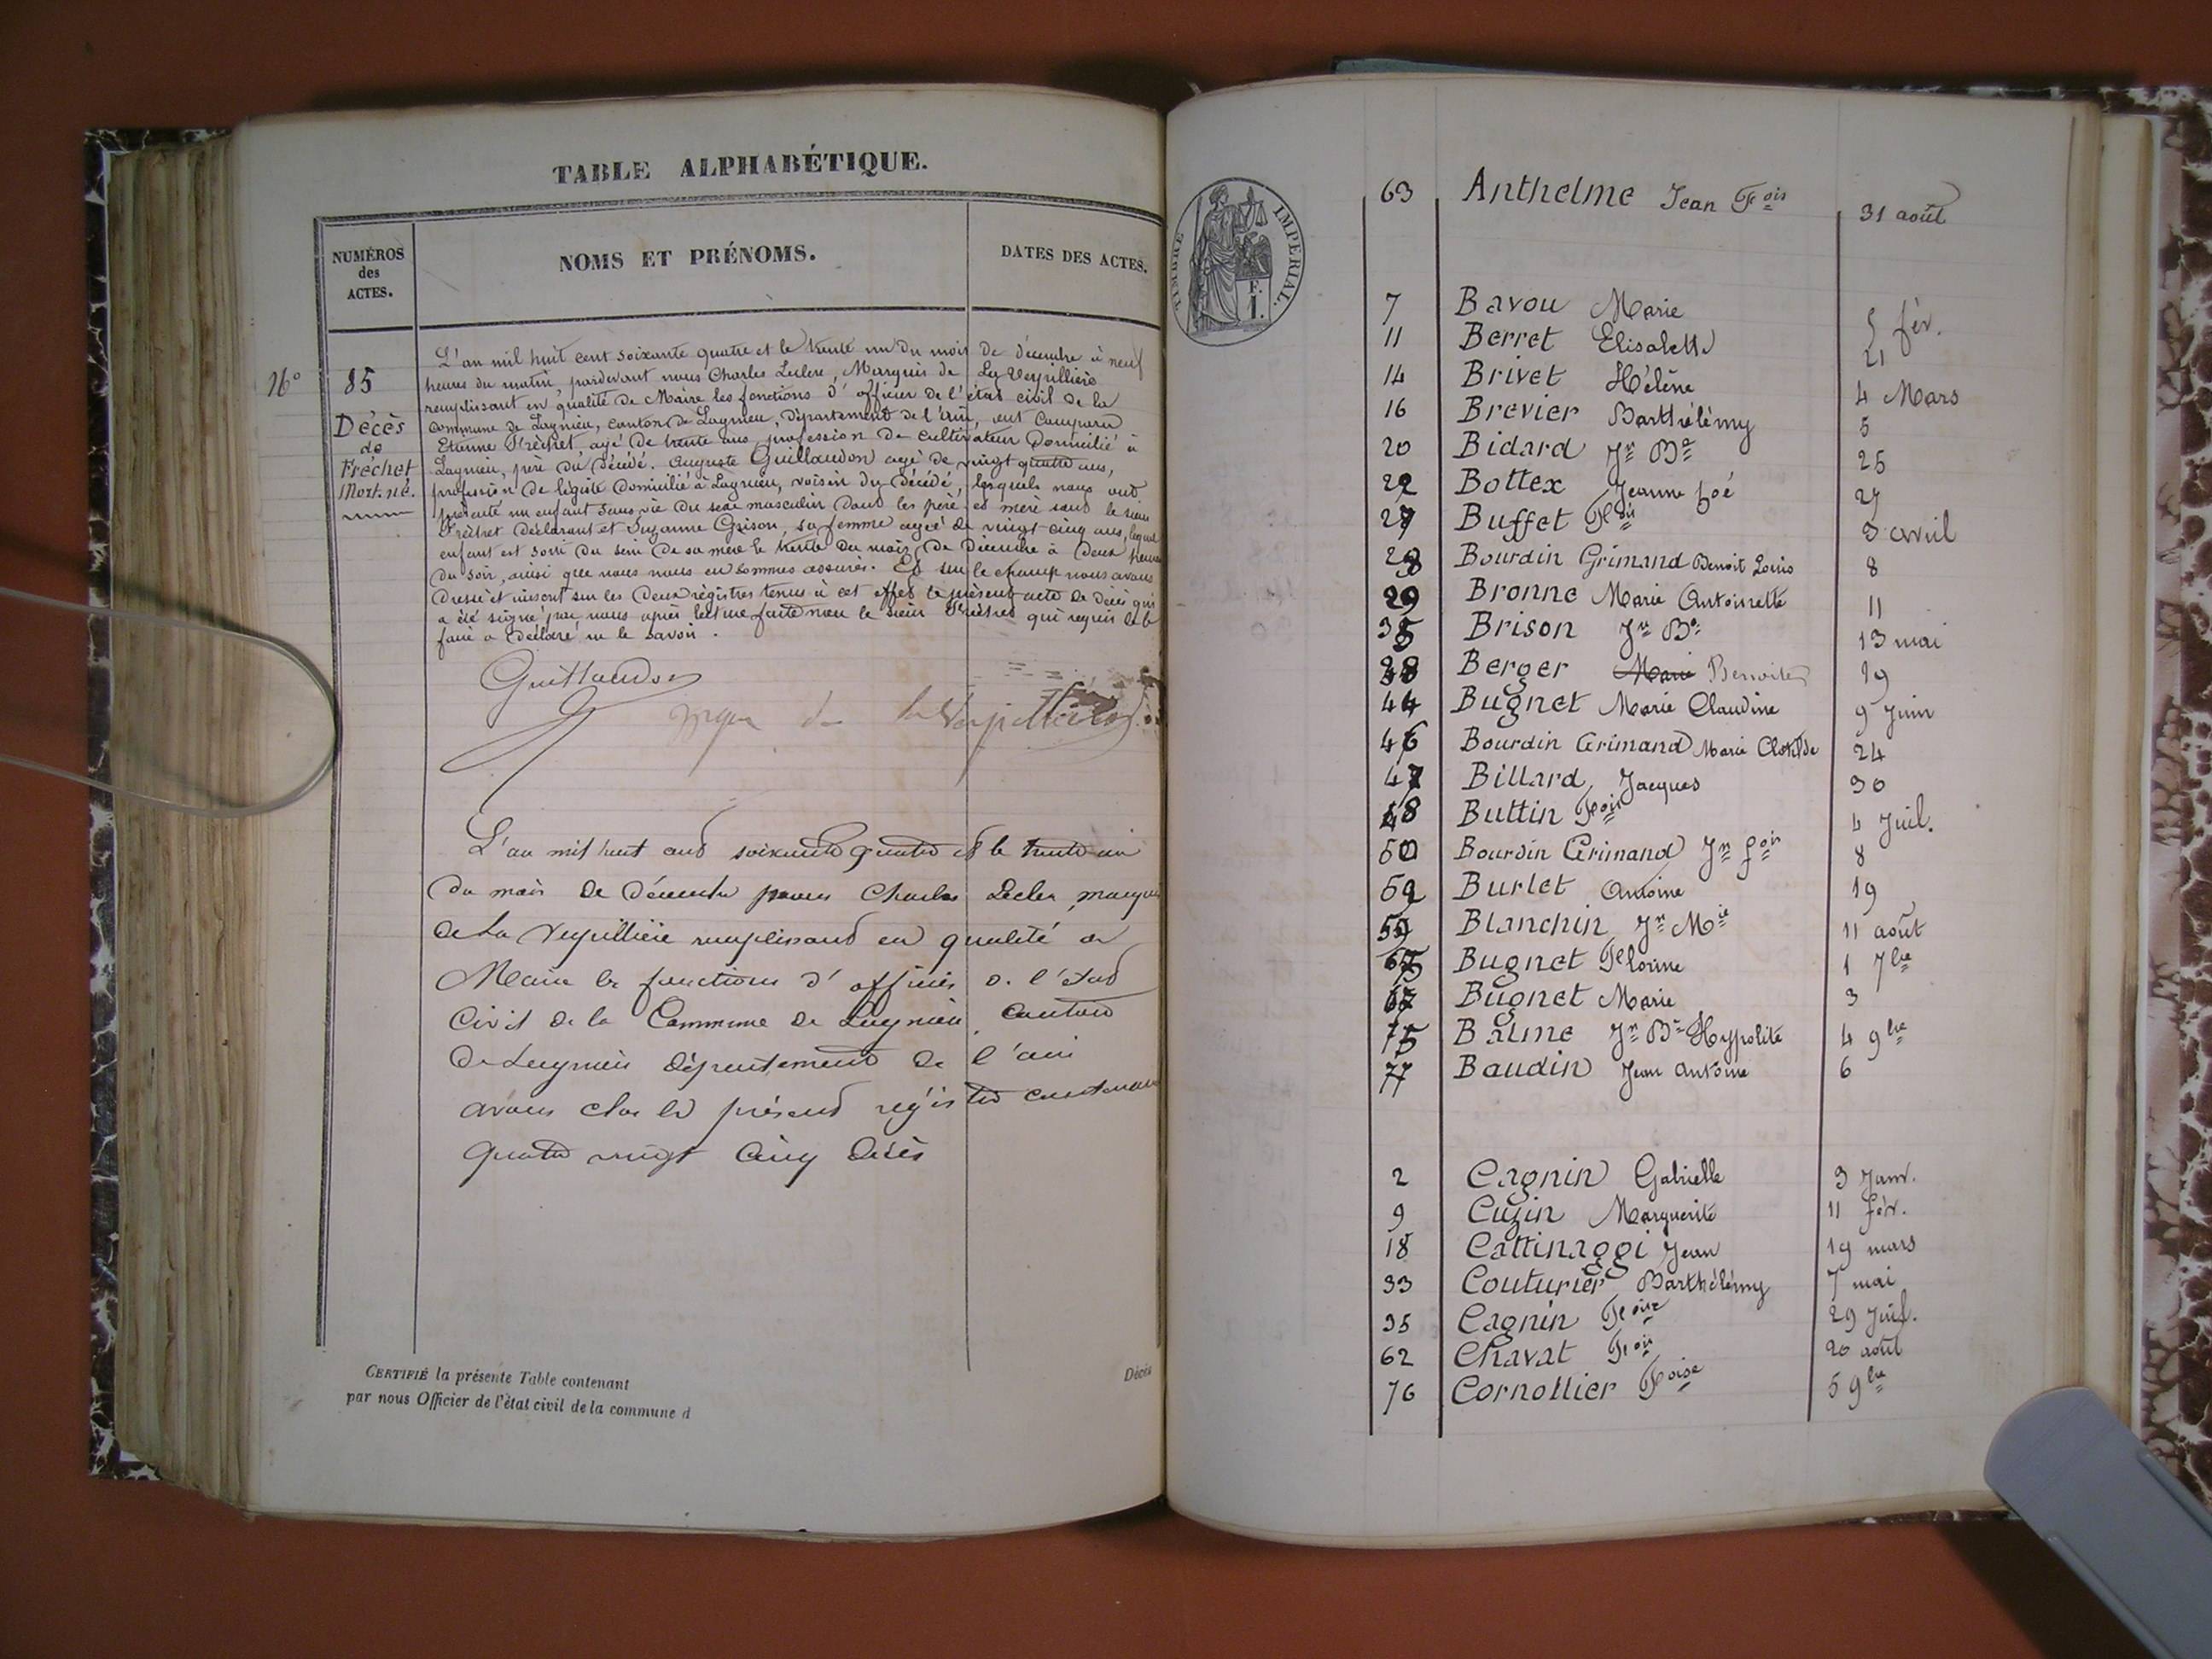 TABLE ALPHABÉTIQUE.
NUMÉROS
des
ACTES.
NOMS ET PRÉNOMS.
DATES DES ACTES.
N° 85
Décès
de
Fréchet
Mort-né.
L'an mil huit cent soixante quatre et le trente un du mois de décembre à neuf
heures du matin, pardevant nous Charles Leclerc, Marquis de La Verpillière
remplissant en qualité de Maire les fonctions d'officier de l'état civil de la
commune de Lagnieu, canton de Lagnieu, département de l'ain, ont comparu
Etienne Fréchet, agé de trente ans, profession de cultivateur domicilié à
Lagnieu, père du décédé. Auguste Guillaudon agé de vingt quatre ans,
profession de légiste domicilié à Lagnieu, voisin du décédé, lesquels nous ont
présenté un enfant sans vie du sexe masculin dont les père et mère sont le sieur
Fréchet déclarant et Suzanne Grison, sa femme agée de vingt-cinq ans, lequel
enfant est sorti du sein de sa mère le trente du mois de Décembre à deux heures
du soir, ainsi que nous nous en sommes assurés. Et sur le champ nous avons
dressé et inscrit sur les deux régistres tenus à cet effet le présent acte de décès qui
a été signé par nous après lecture faite non le sieur Fréchet qui requis de le
faire a déclaré ne le savoir.
Guillaudon
de la Verpillière
L'an mil huit cent soixante quatre et le trente un
du mois de décembre nous Charles Lecler, marquis
de La Verpillière remplissant en qualité de
Maire les fonctions d'officier de l'état
Civil de la Commune de Lagnieu, canton
de Lagnieu département de l'ain
avons clos le présent régistre contenant
quatre vingt cinq décès
CERTIFIÉ la présente Table contenant
Décès
par nous Officier de l'état civil de la commune d
TIMBRE IMPERIAL.
F.
1.
63 Anthelme Jean Fois 31 août
7 Bavou Marie 5 fév.
11 Berret Elisabeth 21
14 Brivet Hélène 4 Mars
16 Brevier Barthélémy 5
20 Bidard Jn Bte 25
22 Bottex Jeanne Zoé 27
27 Buffet Fois 3 avril
28 Bourdin Grimand Benoit Louis 8
29 Bronne Marie Antoinette 11
35 Brison Jn Bte 13 mai
38 Berger Marie Benoite 19
44 Bugnet Marie Claudine 9 Juin
46 Bourdin Grimand Marie Clotilde 24
47 Billard Jacques 30
48 Buttin Fois 4 Juil.
50 Bourdin Grimand Jn fois 8
52 Burlet Antoine 19
59 Blanchin Jn Mie 11 août
65 Bugnet Florine 1 7bre
67 Bugnet Marie 3
75 Balme Jn Bte Hyppolite 4 9bre
77 Baudin Jean Antoine 6
2 Cagnin Gabrielle 3 Janv.
9 Cuzin Marguerite 11 fév.
18 Cattinaggi Jean 19 mars
33 Couturier Barthélémy 7 mai
35 Cagnin Foise 29 Juil.
62 Chavat Fois 20 août
76 Cornollier Foise 5 9bre